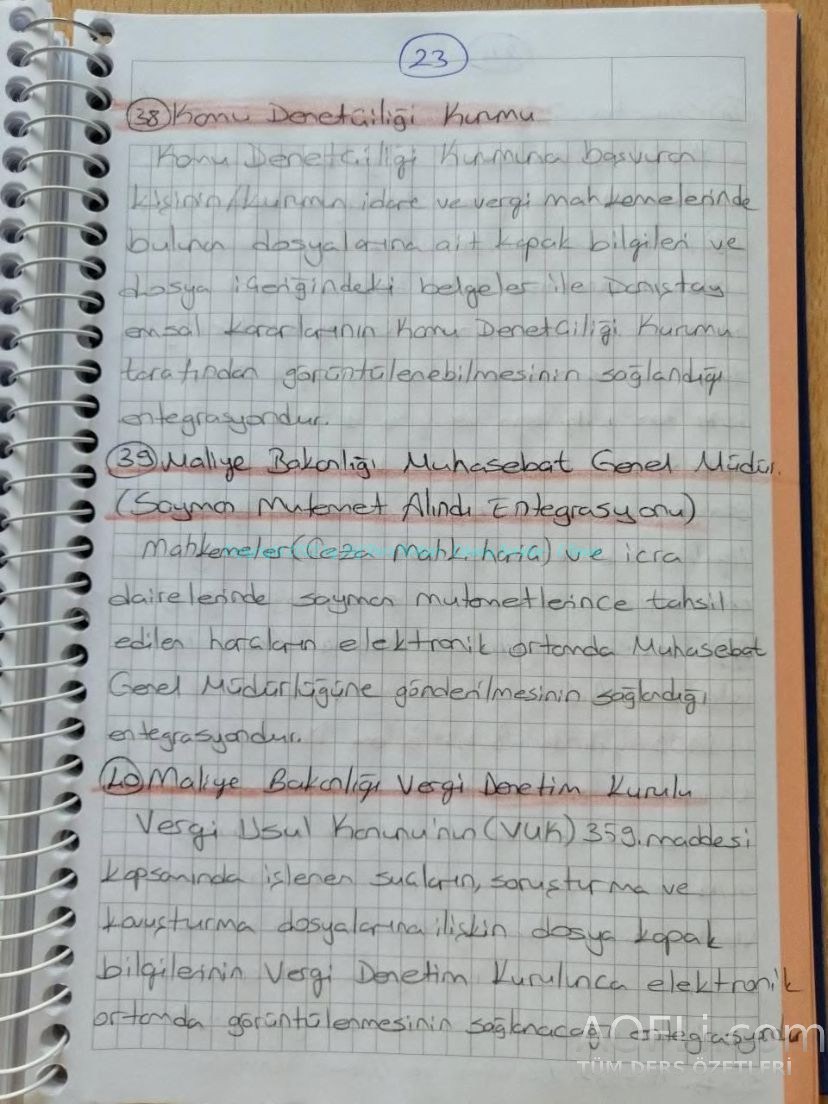 23
38 Kamu Denetçiliği Kurumu
Kamu Denetçiliği Kurumuna başvuran
kişinin/kurumun idare ve vergi mahkemelerinde
bulunan dosyalarına ait kapak bilgileri ve
dosya içeriğindeki belgeler ile Danıştay
emsal kararlarının Kamu Denetçiliği Kurumu
tarafından görüntülenebilmesinin sağlandığı
entegrasyondur.
39 Maliye Bakanlığı Muhasebat Genel Müdür.
(Sayman Mutemet Alındı Entegrasyonu)
Mahkemeler (Ceza Mahk. hariç) ve icra
dairelerinde sayman mutemetlerince tahsil
edilen harçların elektronik ortamda Muhasebat
Genel Müdürlüğüne gönderilmesinin sağlandığı
entegrasyondur.
40 Maliye Bakanlığı Vergi Denetim Kurulu
Vergi Usul Kanunu'nun (VUK) 359. maddesi
kapsamında işlenen suçların, soruşturma ve
kovuşturma dosyalarına ilişkin dosya kapak
bilgilerinin Vergi Denetim Kurulunca elektronik
ortamda görüntülenmesinin sağlanacağı entegrasyondur
AOFLi.com
TÜM DERS ÖZETLERİ